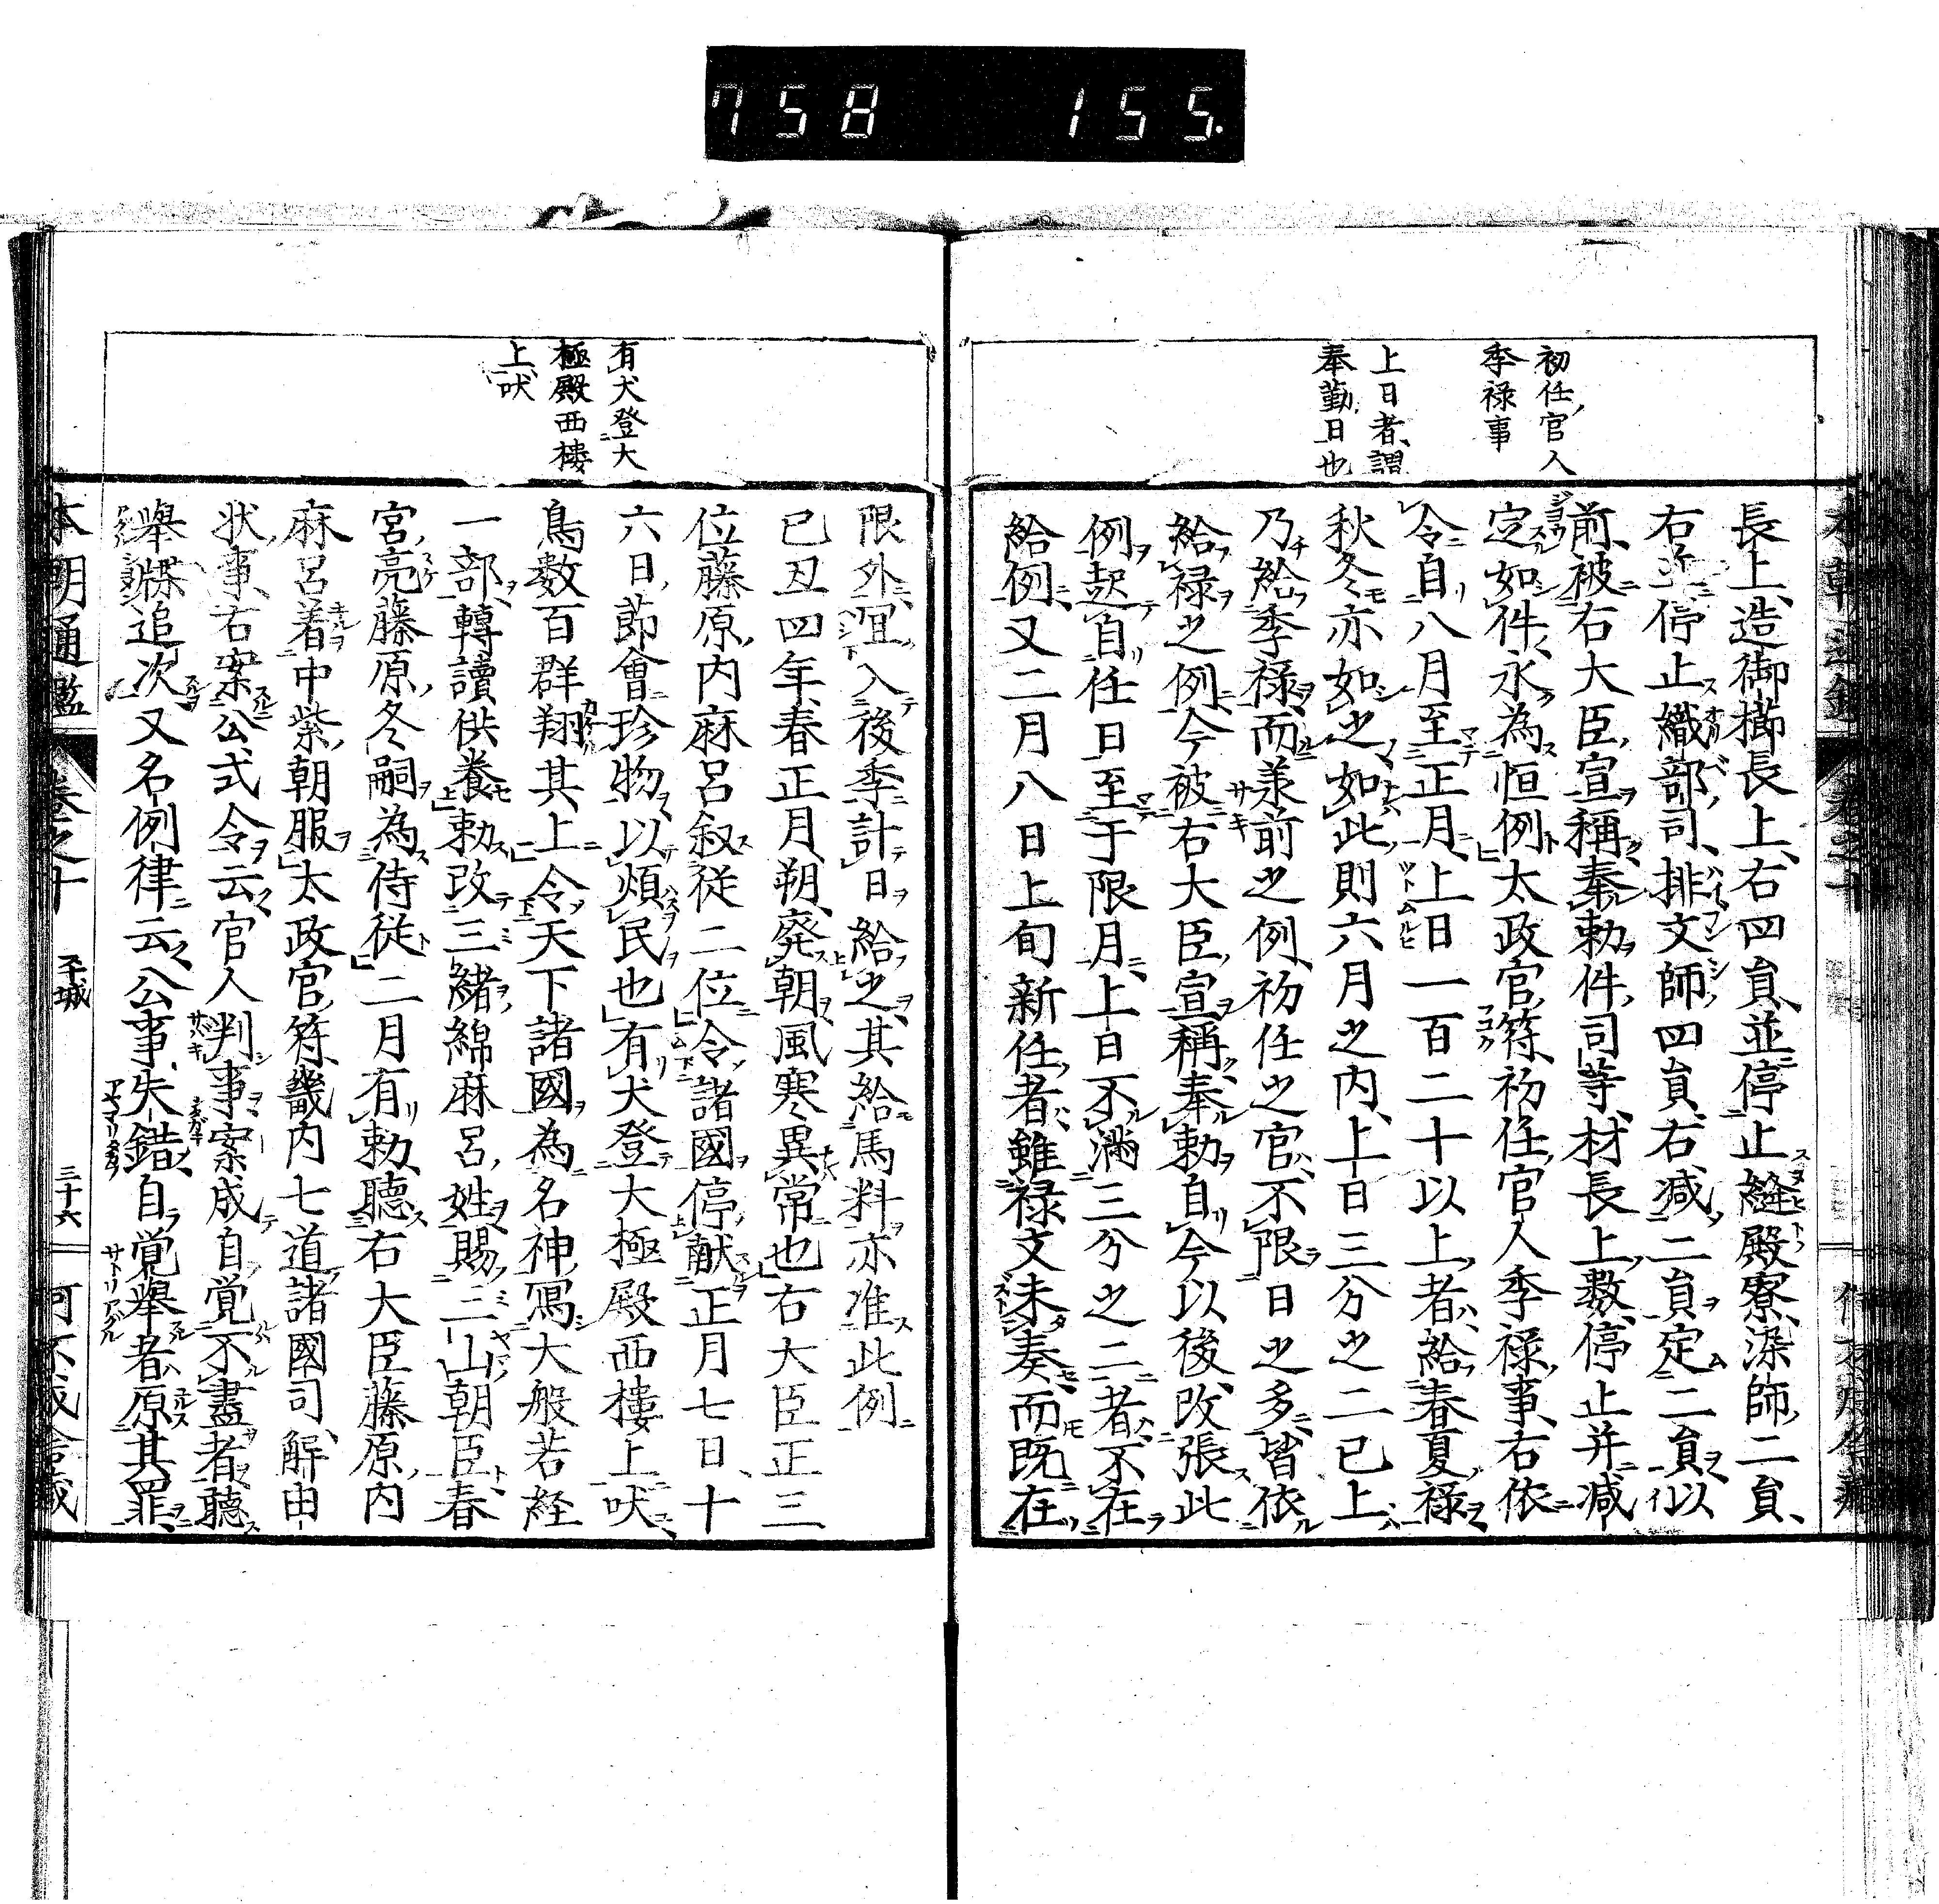 758 155.
初任官人
季禄事
上日者謂
奉勤日也
長上造御櫛長上右四員並停止縫殿寮染師二員
右並停止織部司排文師四員右减二員定二員以
前被右大臣宣稱奉勅件司等材長上數停止并减
定如件永為恒例太政官符初任官人季禄事右依
令自八月至正月上日一百二十以上者給春夏禄
秋冬亦如之如此則六月之内上日三分之二已上
乃給季禄而羕前之例初任之官不限日之多皆依
給禄之例今被右大臣宣稱奉勅自今以後改張此
例起自任日至于限月上日不滿三分之二者不在
給例又二月八日上旬新任者雖禄文未奏而既在
有犬登大
極殿西樓
上吠
限外冝入後季計日給之其給馬料亦准此例
已丑四年春正月朔廃朝風寒異常也右大臣正三
位藤原内麻呂叙従二位令諸國停献正月七日十
六日節會珍物以煩民也有犬登大極殿西樓上吠
鳥數百群翔其上令天下諸國為名神冩大般若経
一部轉讀供養勅改三緒綿麻呂姓賜三山朝臣春
宮亮藤原冬嗣為侍従二月有勅聴右大臣藤原内
麻呂着中紫朝服太政官符畿内七道諸國司解由
状事右案公式令云官人判事案成自覚不盡者聴
舉牒追次又名例律云公事失錯自覚舉者原其罪
本朝通鑑 卷之十 平城 三十六